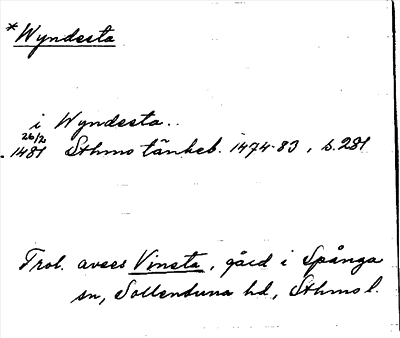 *Wyndesta
i Wyndesta..
26/2
1481 Sthms tänkeb. 1474-83, s.281
Trol. avses Vinsta, gård i Spånga
sn, Sollentuna hd, Sthms l.